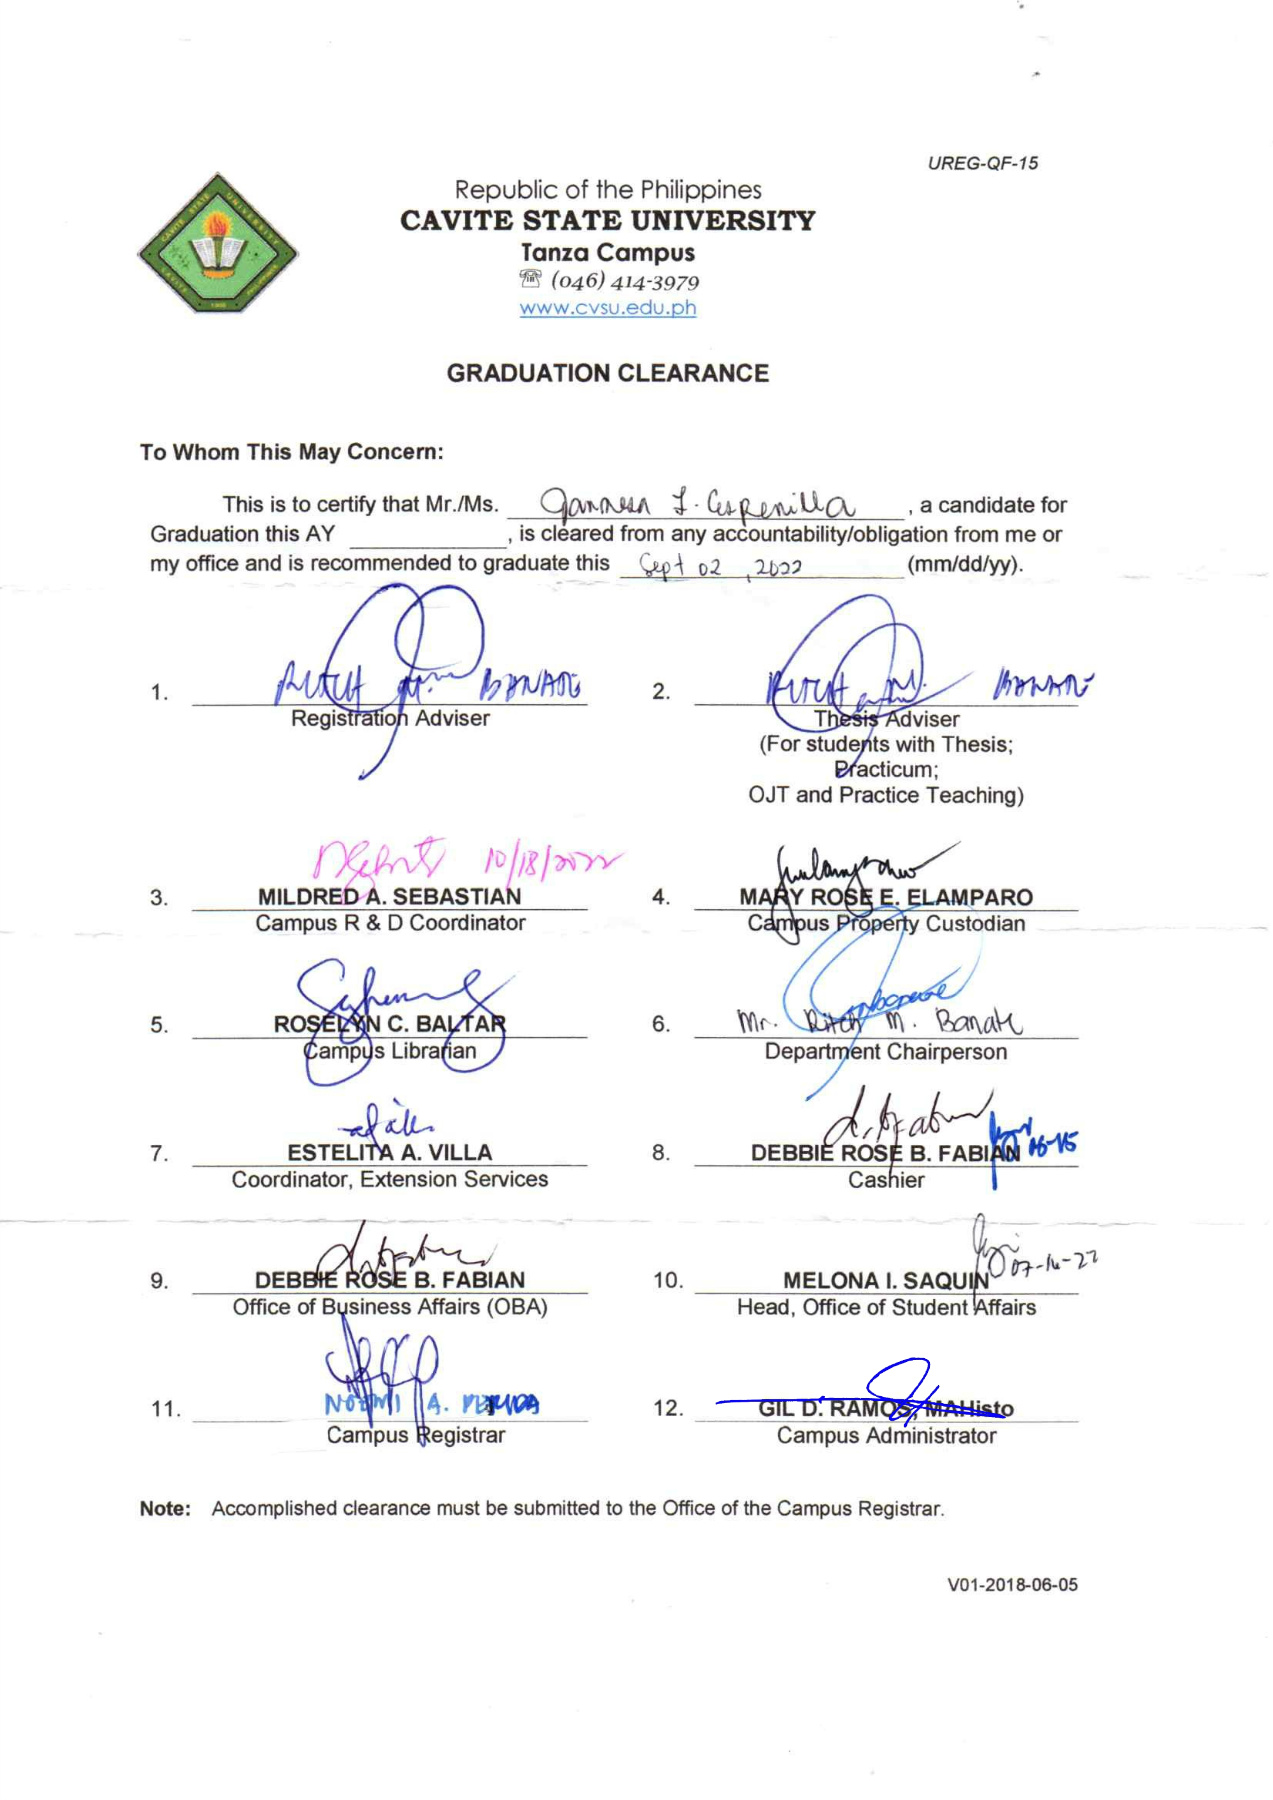 UREG-QF-15
CAVITE STATE UNIVERSITY
CAVITE PHILIPPINES
1906
Republic of the Philippines
CAVITE STATE UNIVERSITY
Tanza Campus
☏ (046) 414-3979
www.cvsu.edu.ph
GRADUATION CLEARANCE
To Whom This May Concern:
This is to certify that Mr./Ms. L. Cespenilla, a candidate for
Graduation this AY ____________, is cleared from any accountability/obligation from me or
my office and is recommended to graduate this Sept 02, 2022 (mm/dd/yy).
1. RITCH M. BANATE
Registration Adviser
2. RITCH M. BANATE
Thesis Adviser
(For students with Thesis;
Practicum;
OJT and Practice Teaching)
10/18/2022
3. MILDRED A. SEBASTIAN
Campus R & D Coordinator
4. MARY ROSE E. ELAMPARO
Campus Property Custodian
5. ROSELYN C. BALTAR
Campus Librarian
6. Mr. Ritch M. Banate
Department Chairperson
7. ESTELITA A. VILLA
Coordinator, Extension Services
8. DEBBIE ROSE B. FABIAN
Cashier
9. DEBBIE ROSE B. FABIAN
Office of Business Affairs (OBA)
10. MELONA I. SAQUIN
Head, Office of Student Affairs
11. NOEMI A.
Campus Registrar
12. GIL D. RAMOS, MAHisto
Campus Administrator
Note: Accomplished clearance must be submitted to the Office of the Campus Registrar.
V01-2018-06-05